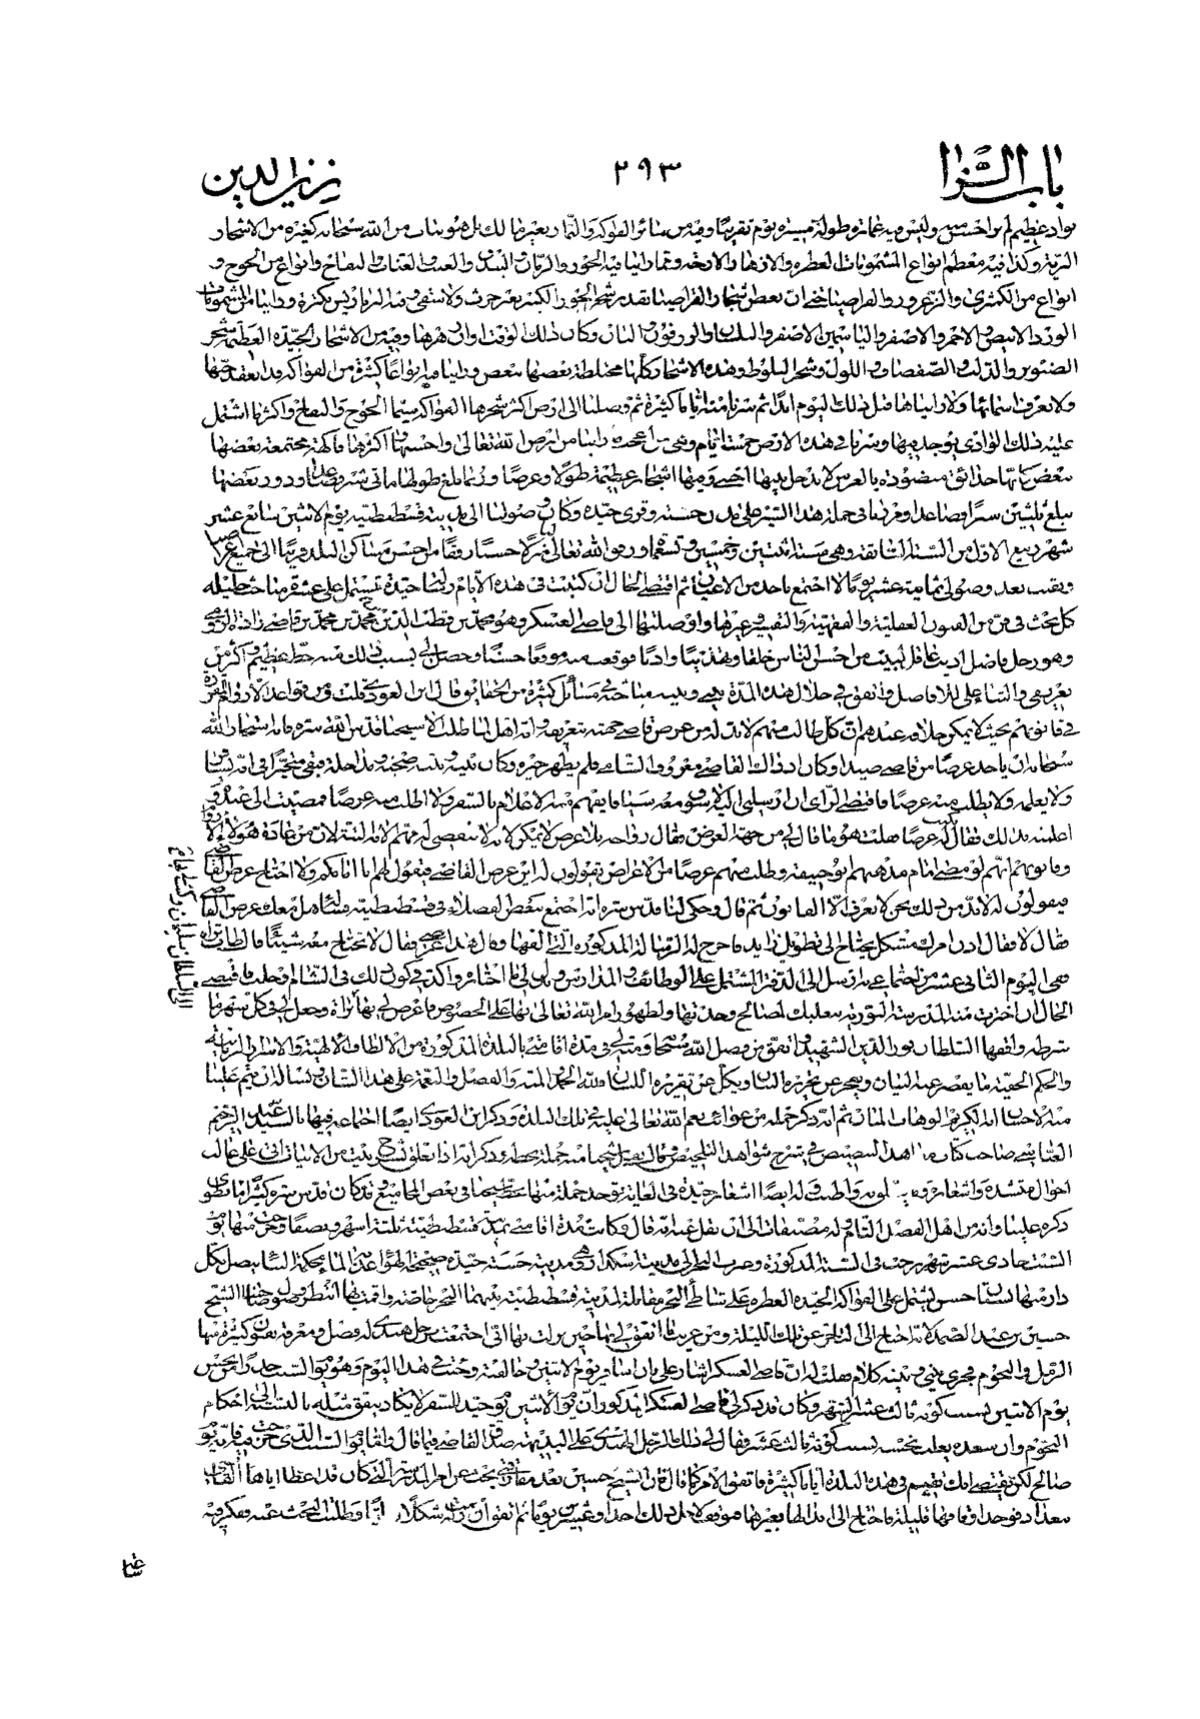 باب الزا
٢٩٣
زين الدين
بواد عظيم لم نر احسن منه وليس فيه عمارة وطوله مسيرة يوم تقريبا وفيه من سائر الفواكه والثمار بغير مالك بل هو نبات من الله سبحانه كغيره من الاشجار
البرية وكذا فيه معظم انواع المشمومات العطرة والازهار الارجة ومما راينا فيه الجوز والرمان والبندق والعنب والعناب والتفاح وانواع من الخوخ و
انواع من الكمثرى والزعرور والقراصيا حتى ان بعض شجر القراصيا بقدر شجر الجوز الكبير بغير حرث ولا سقي وفيه البرباريس بكثرة وراينا من المشمومات
الورد الابيض والاحمر والاصفر والياسمين الاصفر والبلسان والزيزفون والبان وكان ذلك الوقت اوان زهرها وفيه من الاشجار الجيدة العظيمة شجر
الصنوبر والدلب والصفصاف واللول وشجر البلوط وهذه الاشجار كلها مختلطة بعضها ببعض وراينا فيه انواعا كثيرة من الفواكه قد انعقد حبها
ولا نعرف اسمائها ولا رايناها قبل ذلك اليوم ابدا ثم سرنا منه اياما كثيرة ثم وصلنا الى ارض اكثر شجرها الفواكه سيما الخوخ والتفاح واكثر ما اشتمل
عليه ذلك الوادي يوجد فيها وسرنا في هذه الارض خمسة ايام وهي من اعجب ما راينا من ارض الله تعالى واحسنها واكثرها فاكهة مجتمعة بعضها
ببعض كانها حدائق منضودة بالغرس لا يدخل بينها اجنبي ومنها اشجار عظيمة طولا وعرضا وربما بلغ طولها مأتي شبر فصاعدا ودور بعضها
يبلغ ثلثين شبرا فصاعدا ومررنا في جملة هذا السير على مدن حسنة وقرى جيدة وكان وصولنا الى مدينة قسطنطينية يوم الاثنين سابع عشر
شهر ربيع الاول من السنة السابقة وهي سنة اثنتين وخمسين وتسعمأة ووفق الله تعالى لنا منزلا حسنا رفقا من احسن مساكن البلد قريبا الى جميع اغراضنا
وبقيت بعد وصولي ثمانية عشر يوما لا اجتمع باحد من الاعيان ثم اقتضى الحال ان كتبت في هذه الايام رسالة جيدة تشتمل على عشرة مباحث جليلة
كل بحث في فن من الفنون العقلية والفقهية والتفسير وغيرها واوصلتها الى قاضي العسكر وهو محمد بن قطب الدين بن محمد بن محمد بن قاضي زاده الرومي
وهو رجل فاضل اديب عاقل لبيب من احسن الناس خلقا وتهذيبا وادبا فوقعت منه موقعا حسنا وحصل لي بسبب ذلك منه حظ عظيم واكثر من
تعريفي والثناء علي للافاضل واتفق في خلال هذه المدة بيني وبينه مباحثة في مسائل كثيرة من الحقايق قال ابن العودي قلت ومن قواعد الاروام المقررة
في قانونهم بحيث لا يمكن خلافه عندهم ان كل طالب منهم لا بد له من عرض قاضي جهته بتعريفه وانه اهل لما طلب الا شيخنا قدس الله سره فانه استخار الله
سبحانه ان ياخذ عرضا من قاضي صيدا وكان اذ ذاك القاضي معروف الشامي فلم يظهر خيرة وكان بينه وبينه صحبة ومداخلة فبقي متحيرا في انه يسافر
ولا يعلمه ولا يطلب منه عرضا فاقتضى الراي ان ارسلني اليه لاسوق معه سياقا يفهم منه الاعلام بالسفر ولا اطلب منه عرضا فمضيت الى عنده و
اعلمته بذلك فقال نكتب له عرضا فقلت هو ما قال لي من جهة العرض فقال رواحه بلا عرض لا يمكن لانه لا ينقضي له مهم الا به البتة لان من عادة هؤلاء الاروام
وقانونهم انهم لو مضى امام مذهبهم ابو حنيفة وطلب منهم غرضا من الاغراض يقولون له اين عرض القاضي فيقول لهم انا امامكم ولا احتاج عرض القاضي
فيقولون له لا بد من ذلك نحن لا نعرف الا القانون ثم قال وحكى لنا قدس سره انه اجتمع ببعض الفضلاء في قسطنطينية فسئله هل معك عرض القاضي
فقال لا فقال اذن امرك مشكل يحتاج الى تطويل زايد فاخرج له الرسالة المذكورة التي الفها وقال هذا عرضي فقال لا تحتاج معه شيئا قال طاب ثراه
ففي اليوم الثاني عشر من اجتماعي به ارسل الي الدفتر المشتمل على الوظائف والمدارس وبذل لي ما اختاره واكد في كون ذلك في الشام او حلب فاقتضى
الحال ان اخترت منه المدرسة النورية ببعلبك لمصالح وجدتها ولظهور امر الله تعالى بها على الخصوص فاعرض لي بها الى السلطان سليمان وكتب لي بها براة وجعل لي في كل شهر ما
شرطه واقفها السلطان نور الدين الشهيد واتفق من فضل الله سبحانه ومنته لي في مدة اقامتي بالبلدة المذكورة من الالطاف الالهية والاسرار الربانية
والحكم الخفية ما يقصر عنه البيان ويعجز عن تحريره البنان ويكل عن تقريره اللسان فلله الحمد والمنة والفضل والنعمة على هذا الشان ونسأله ان يتم علينا
منه الاحسان انه الكريم الوهاب المنان ثم انه ذكر جملة من عوائد نعم الله تعالى عليه في تلك البلدة وذكر ابن العودي ايضا اجتماعه فيها بالسيد عبد الرحيم
العباسي صاحب كتاب معاهد التنصيص في شرح شواهد التلخيص
ذكره علينا وانه من اهل الفضل التام وله مصنفات الى ان نقل عنه انه قال وكانت مدة اقامتي بمدينة قسطنطينية ثلثة اشهر ونصفا وخرجت منها يوم
السبت حادي عشر شهر رجب في السنة المذكورة وعبرت البحر الى مدينة اسكدار وهي مدينة حسنة جيدة صحيحة الهواء عذبة الماء محكمة البناء يتصل بكل
دار منها بستان حسن يشتمل على الفواكه الجيدة العطرة على شاطئ البحر مقابلة لمدينة قسطنطينية بينهما البحر خاصة واقمت بها انتظر وصول صاحبنا الشيخ
حسين بن عبد الصمد لانه احتاج الى التاخر عن تلك الليلة ومن غريب ما اتفق لي بها حين نزلت بها اني اجتمعت برجل هندي له فضل ومعرفة بفنون كثيرة منها
الرمل والنجوم فجرى بيني وبينه كلام فقلت له ان قاضي العسكر اشار علي بان اسافر يوم الاثنين وخالفته وجئت في هذا اليوم وهو يوم السبت حذرا من نحس
يوم الاثنين بسبب كونه ثالث عشر الشهر وكان قد ذكر لي قاضي العسكر المذكور ان يوم الاثنين يوم جيد للسفر لا يكاد يتفق مثله بالنسبة الى احكام
النجوم وان سعده يغلب نحسه بسبب كونه ثالث عشر فقال لي ذلك الرجل الهندي على البديهة صدق القاضي فيما قال واما يوم السبت الذي خرجت فيه فانه يوم
صالح لكن يقتضي انك تقيم في هذه البلدة اياما كثيرة فاتفق الامر كما قال فان الشيخ حسين بعد مفارقتي بحث عن امر المدرسة التي كان قد اعطاه اياها القاضي
ببغداد فوجد اوقافها قليلة فاحتاج الى ابدالها بغيرها فتوقف لاجل ذلك احدا وعشرين يوما ثم اتفق
عشا